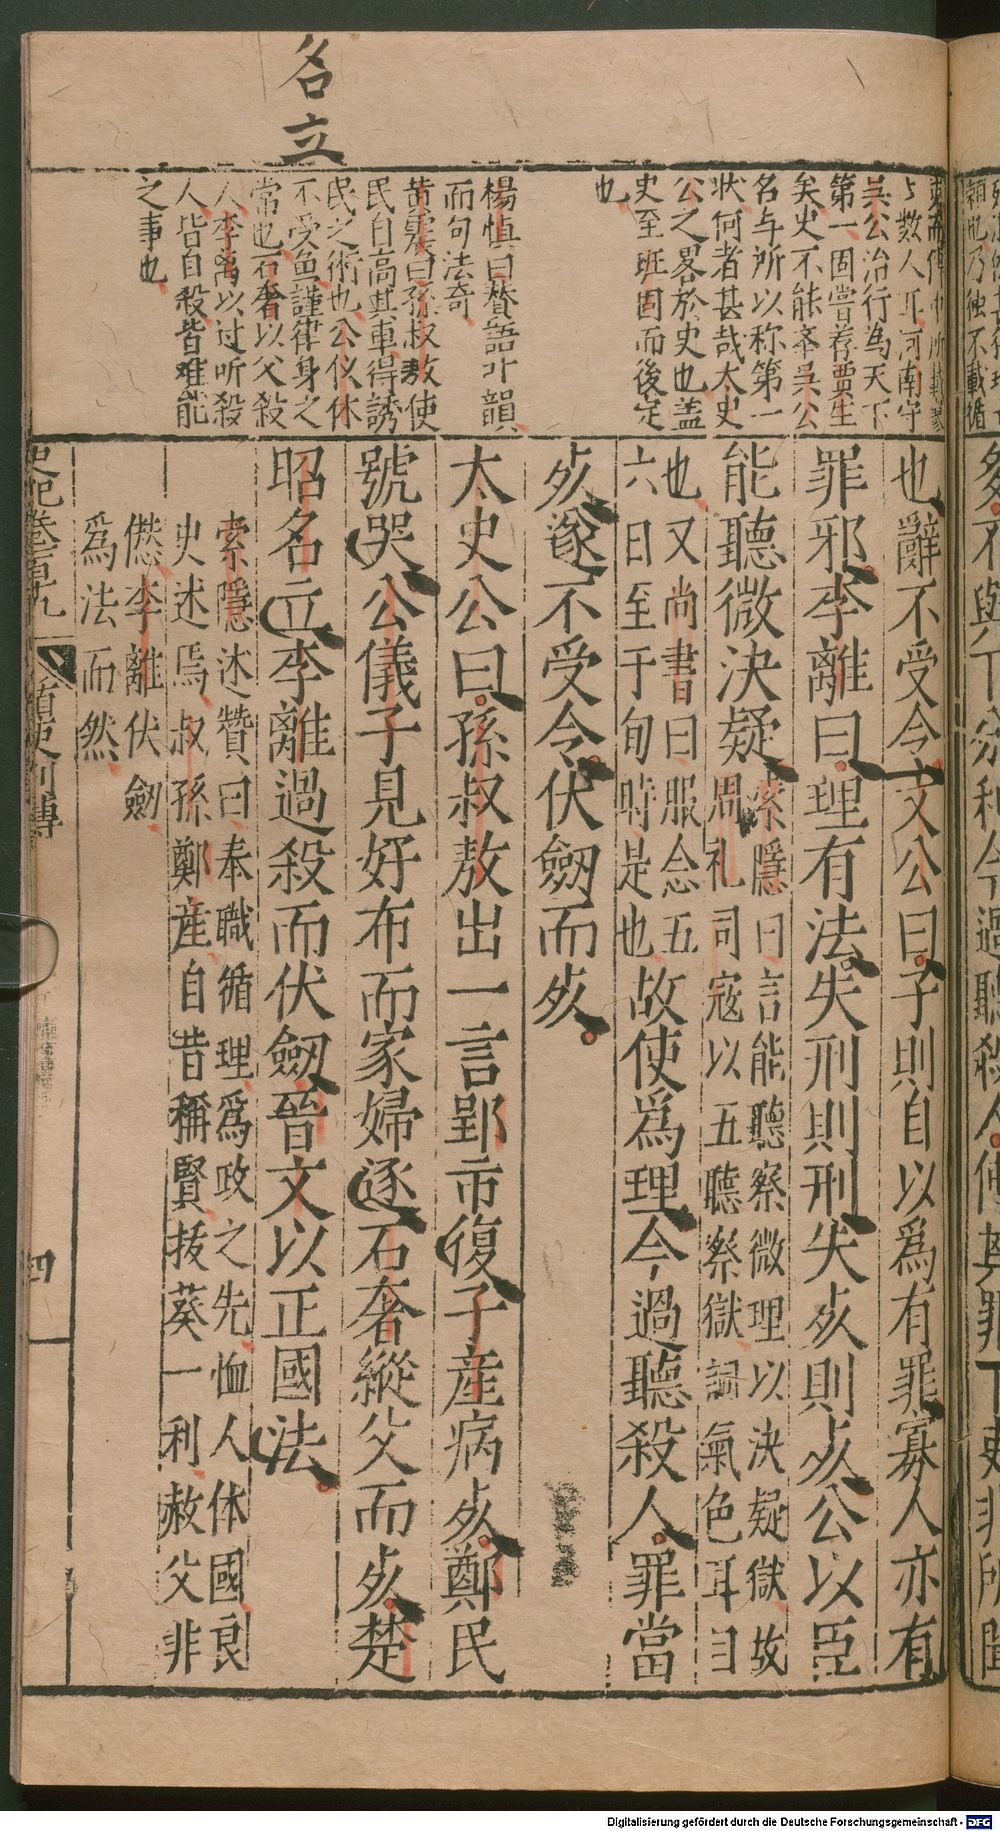 名立
与数人耳河南守
吳公治行為天下
第一固嘗荐賈生
矣史不能本吳公
名与所以称第一
状何者甚哉太史
公之畧於史也盖
史至班固而後定
也
楊慎曰贊語叶韻
而句法奇
黄震曰孫叔敖使
民自高其車得誘
民之術也公仪休
不受魚謹律身之
常也石奢以父殺
人李离以过听殺
人皆自殺皆难能
之事也
也辭不受令文公曰子則自以爲有罪寡人亦有
罪邪李離曰理有法失刑則刑失歺則歺公以臣
能聽微決疑
索隱曰言能聽察微理以決疑獄故
周礼司寇以五聽察獄詞氣色耳目
也又尚書曰服念五
六日至于旬時是也
故使爲理今過聽殺人罪當
歺遂不受令伏劒而歺
太史公曰孫叔敖出一言郢市復子産病歺鄭民
號哭公儀子見好布而家婦逐石奢縱父而歺楚
昭名立李離過殺而伏劒晉文以正國法
索隱述贊曰奉職循理爲政之先恤人体國良
史述焉叔孫鄭産自昔稱賢拔葵一利赦父非
愆李離伏劒
爲法而然
史記卷百九
循吏列傳
四
Digitalisierung gefördert durch die Deutsche Forschungsgemeinschaft - DFG